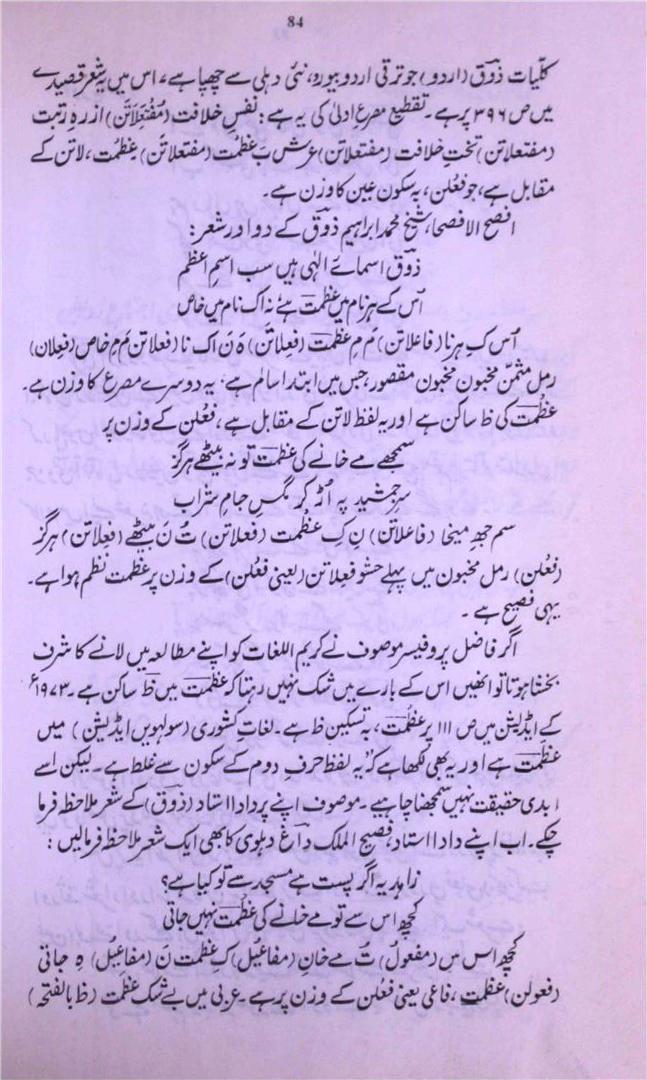 84
کلّیات ذوق (اردو) جو ترقی اردو بیورو، نئی دہلی سے چھپا ہے، اس میں یہ شعر قصیدے
میں ص ۳۹۶ پر ہے۔ تقطیع مصرع اولیٰ کی یہ ہے: نفسِ خلافت (مُفتَعِلاتن) از رہِ رتبت
(مفتعلاتن) تختِ خلافت (مفتعلاتن) عرش بَ عظمت (مفتعلاتن) عظمت، لاتن کے
مقابل ہے، جو فعْلن، بہ سکونِ عین کا وزن ہے۔
افصح الافصحا، شیخ محمد ابراہیم ذوق کے دو اور شعر:
ذوق اسمائے الٰہی ہیں سب اسمِ اعظم
اُس کے ہر نام میں عظمت ہے نہ اک نام میں خاص
اُس کِ ہر نا (فاعلاتن) مَ مِ عظمت (فعلاتن) ہَ نَ اک نا (فعلاتن) مَ مِ خاص (فعِلان)
رمل مثمّن مخبون مخبون مقصور، جس میں ابتدا سالم ہے، یہ دوسرے مصرع کا وزن ہے۔
عظْمت کی ظ ساکن ہے اور یہ لفظ لاتن کے مقابل ہے، فعْلن کے وزن پر
سمجھے مے خانے کی عظمت تو نہ بیٹھے ہرگز
سرِ جمشید پہ اُڑ کر مگسِ جامِ شراب
سم جھِ میخا (فاعلاتن) نِ کِ عظمت (فعلاتن) تُ نَ بیٹھے (فعِلاتن) ہرگز
(فعْلن) رمل مخبون میں پہلے حشو فعلاتن (یعنی فعْلن) کے وزن پر عظمت نظم ہوا ہے۔
یہی فصیح ہے۔
اگر فاضل پروفیسر موصوف نے کریم اللغات کو اپنے مطالعہ میں لانے کا شرف
بخشا ہوتا تو انھیں اس کے بارے میں شک نہیں رہتا کہ عظمت میں ظ ساکن ہے۔ ۱۹۷۳ء
کے ایڈیشن میں ص ۱۱۱ پر عظْمت، بہ تسکین ظ ہے۔ لغاتِ کشوری (سولہویں ایڈیشن) میں
عظَمت ہے اور یہ بھی لکھا ہے کہ "یہ لفظ حرفِ دوم کے سکون سے غلط ہے۔ لیکن اسے
ابدی حقیقت نہیں سمجھنا چاہیے۔ موصوف اپنے پردادا استاد (ذوق) کے شعر ملاحظہ فرما
چکے۔ اب اپنے دادا استاد، فصیح الملک داغ دہلوی کا بھی ایک شعر ملاحظہ فرمالیں:
زاہد یہ اگر پست ہے مسجد سے تو کیا ہے؟
کچھ اس سے تو مے خانے کی عظمت نہیں جاتی
کچھ اس سِ (مفعول) تُ مے خانِ (مفاعیل) کِ عظمت نَ (مفاعیل) ہِ جاتی
(فعولن) عظمت، فاعی یعنی فعْلن کے وزن پر ہے۔ عربی میں بے شک عظَمت (ظ بالفتحہ)